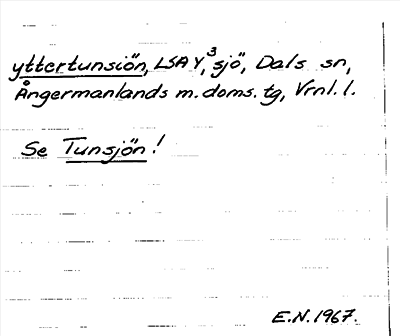 yttertunsiön, LSA Y,³ sjö, Dals sn,
Ångermanlands m. doms. tg, Vrnl. l.
Se Tunsjön!
E.N. 1967.